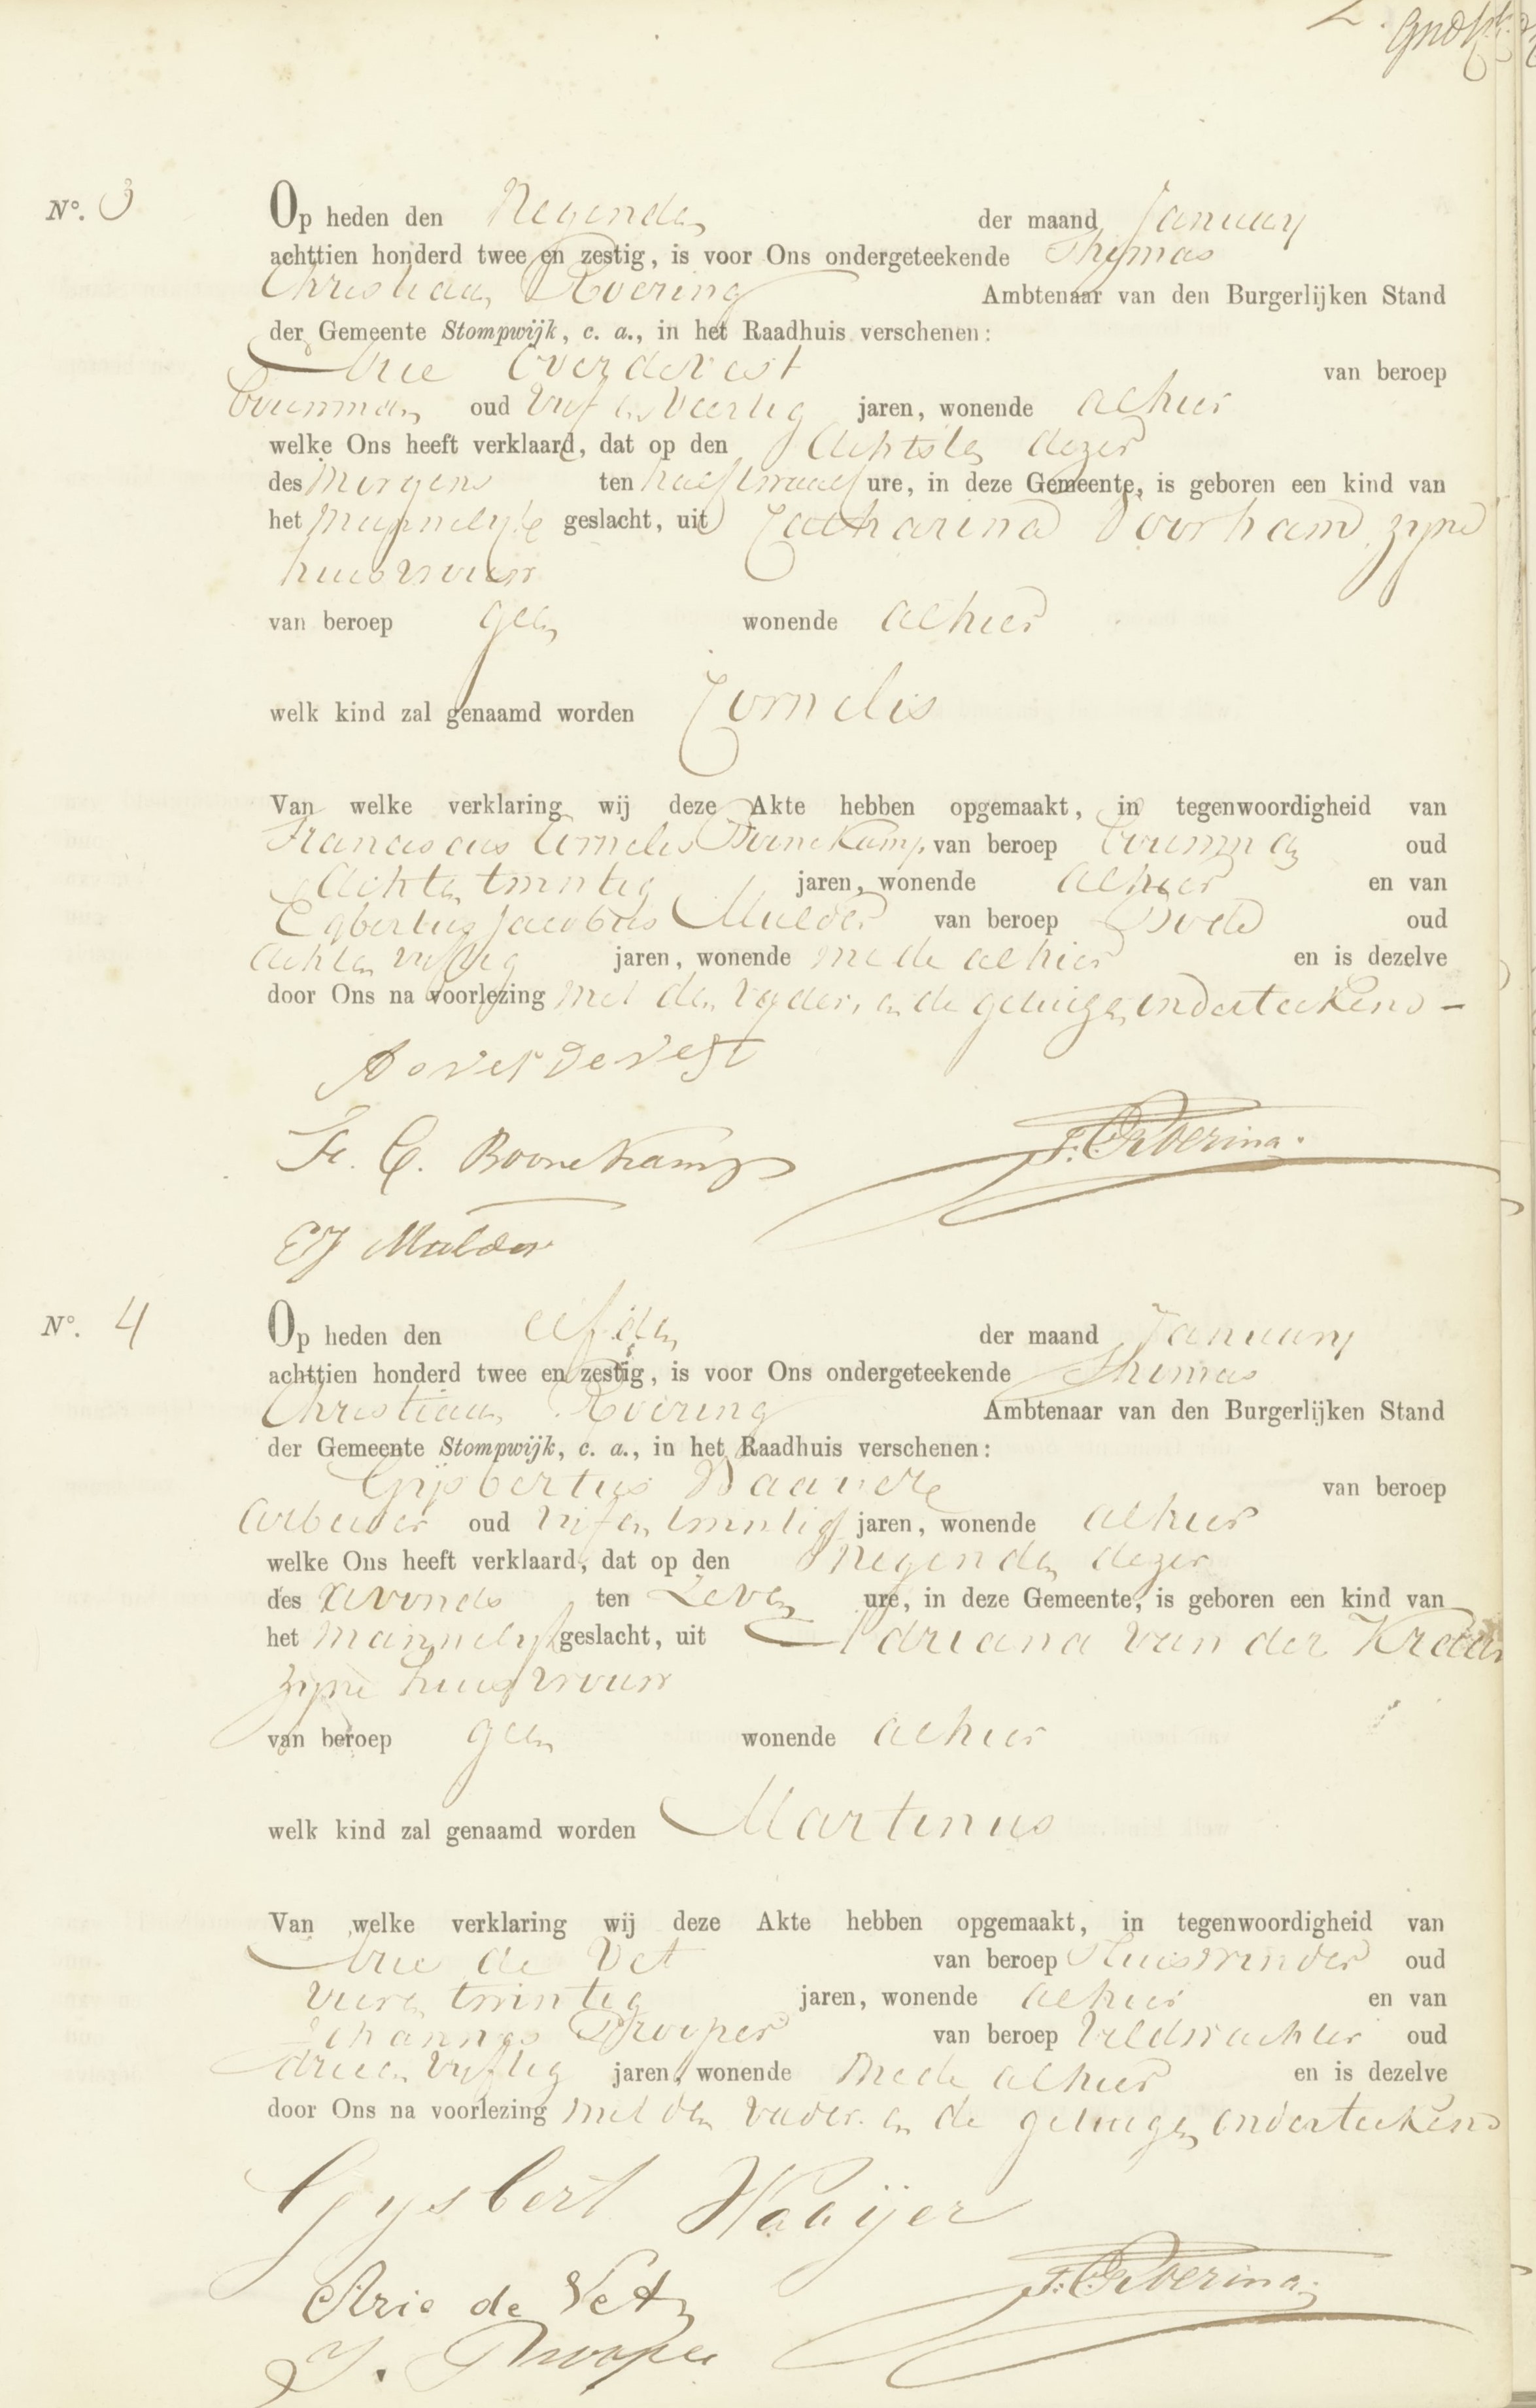 Nº. 3
Op heden den Negenden der maand January
achttien honderd twee en zestig, is voor Ons ondergeteekende Thomas
Christiaan Roering Ambtenaar van den Burgerlijken Stand
der Gemeente Stompwijk, c. a., in het Raadhuis verschenen:
Arie Overdevest van beroep
Bouwman oud Vijf en Veertig jaren, wonende alhier
welke Ons heeft verklaard, dat op den Achtsten dezer
des Morgens ten half twaalf ure, in deze Gemeente, is geboren een kind van
het Mannelijke geslacht, uit Catharina Voorham zijne
huisvrouw
van beroep geen wonende alhier
welk kind zal genaamd worden Cornelis
Van welke verklaring wij deze Akte hebben opgemaakt, in tegenwoordigheid van
Franciscus Cornelis Boonekamp van beroep Bouwman oud
Achten twintig jaren, wonende alhier en van
Egbertus Jacobus Mulder van beroep Bode oud
Achten vijftig jaren, wonende mede alhier en is dezelve
door Ons na voorlezing met den Vader, en de getuigen onderteekend –
A overdevest
Fr. C. Boonekamp T. C. Roering.
EJ Mulder
Nº. 4
Op heden den elfden der maand January
achttien honderd twee en zestig, is voor Ons ondergeteekende Thomas
Christiaan Roering Ambtenaar van den Burgerlijken Stand
der Gemeente Stompwijk, c. a., in het Raadhuis verschenen:
Gijsbertus van beroep
Arbeider oud Vijfen twintig jaren, wonende alhier
welke Ons heeft verklaard, dat op den Negenden dezer
des Avonds ten Zeven ure, in deze Gemeente, is geboren een kind van
het Mannelijk geslacht, uit Adriana van der
zijne huisvrouw
van beroep geen wonende alhier
welk kind zal genaamd worden Martinus
Van welke verklaring wij deze Akte hebben opgemaakt, in tegenwoordigheid van
Arie de Vet van beroep oud
Vieren twintig jaren, wonende alhier en van
Johannes Trooper van beroep Veldwachter oud
drieen Vijftig jaren, wonende mede alhier en is dezelve
door Ons na voorlezing met den vader en de getuigen onderteekend
Gysbert Haaijer
Arie de Vet T. C. Roering.
J. Trooper